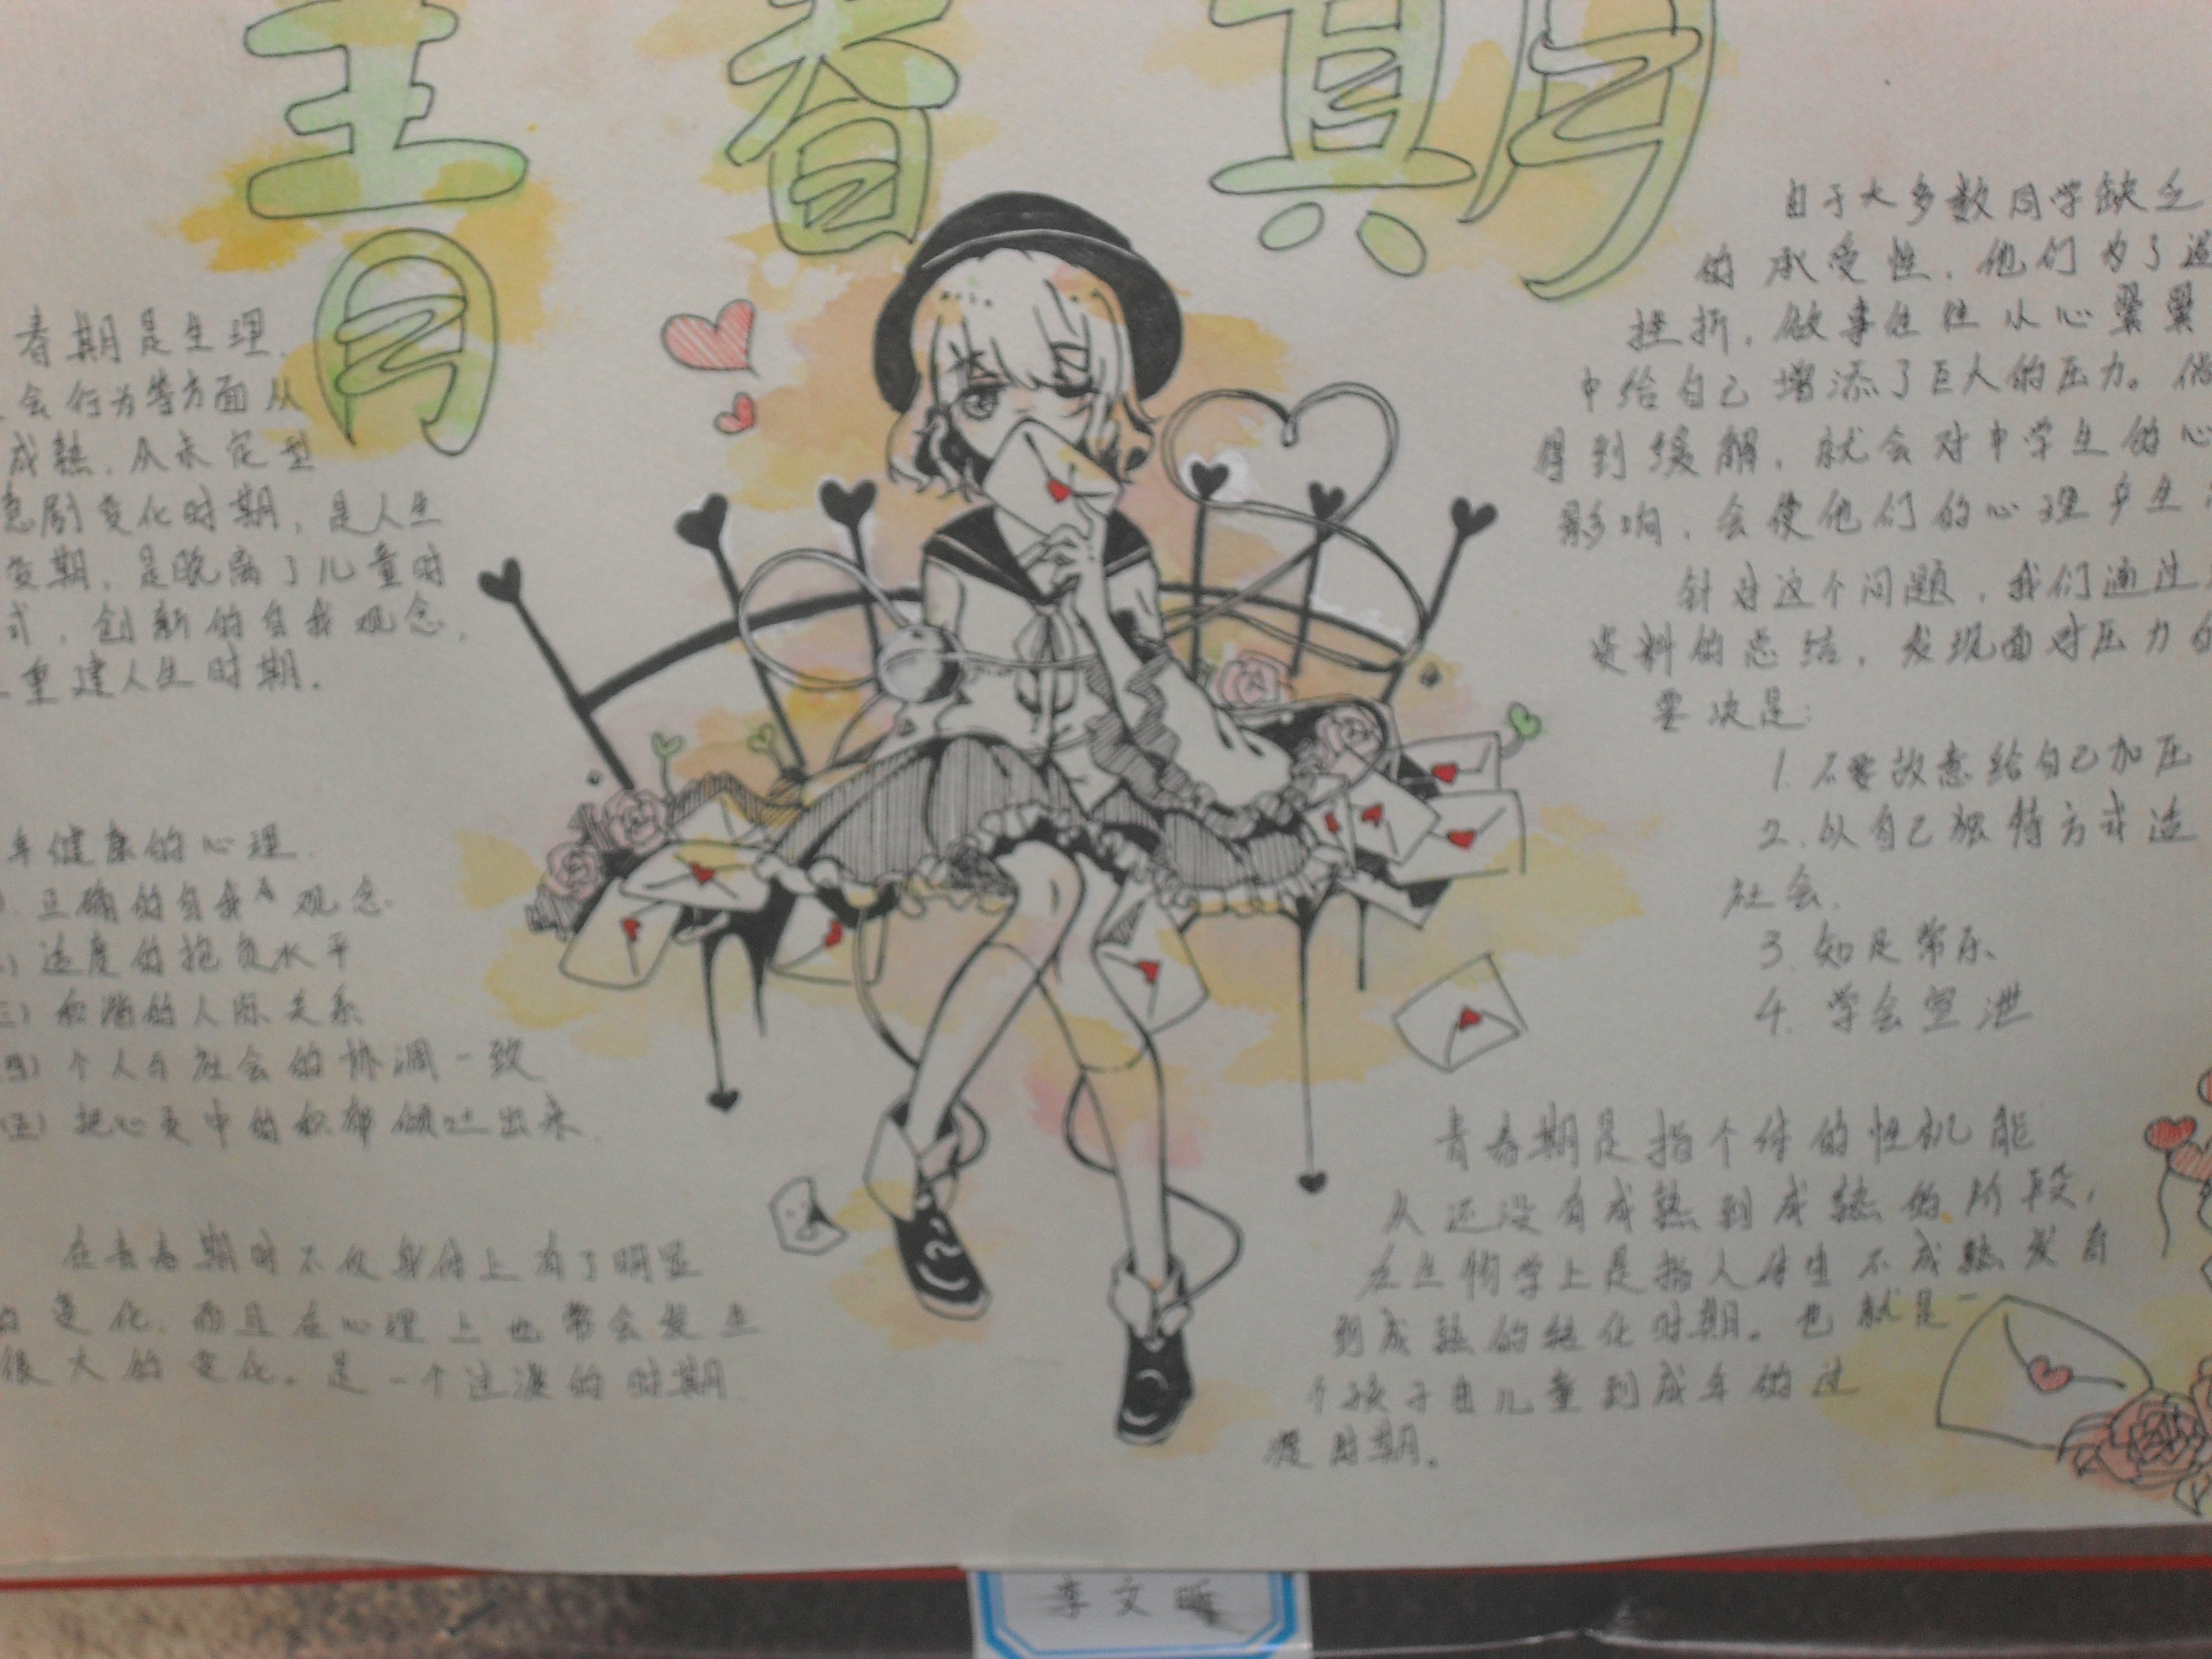 青春期
春期是生理.
会行为等方面从
成熟.从未定型
急剧变化时期,是人生
发期,是脱离了儿童时
式,创新的自我观念,
重建人生时期.
年健康的心理.
正确的自我 观念.
适度的抱负水平
三)和谐的人际关系
四)个人与社会的协调一致
(五)把心灵中的积郁倾吐出来.
在青春期时不仅身体上有了明显
的变化.而且在心理上也常会发生
很大的变化.是一个过渡的时期.
由于大多数同学缺乏
的承受性,他们为了
挫折,做事往往从心翼翼
中给自己增添了巨人的压力。倘
得到缓解,就会对中学生的心
影响,会使他们的心理产生
针对这个问题,我们通过
资料的总结,发现面对压力的
要决是:
1.不要故意给自己加压
2.以自己独特方式适
社会.
3.知足常乐
4.学会宣泄
青春期是指个体的性机能
从还没有成熟到成熟的阶段,
在生物学上是指人体由不成熟发育
到成熟的转化时期。也就是一
个孩子由儿童到成年的过
渡时期。
李文